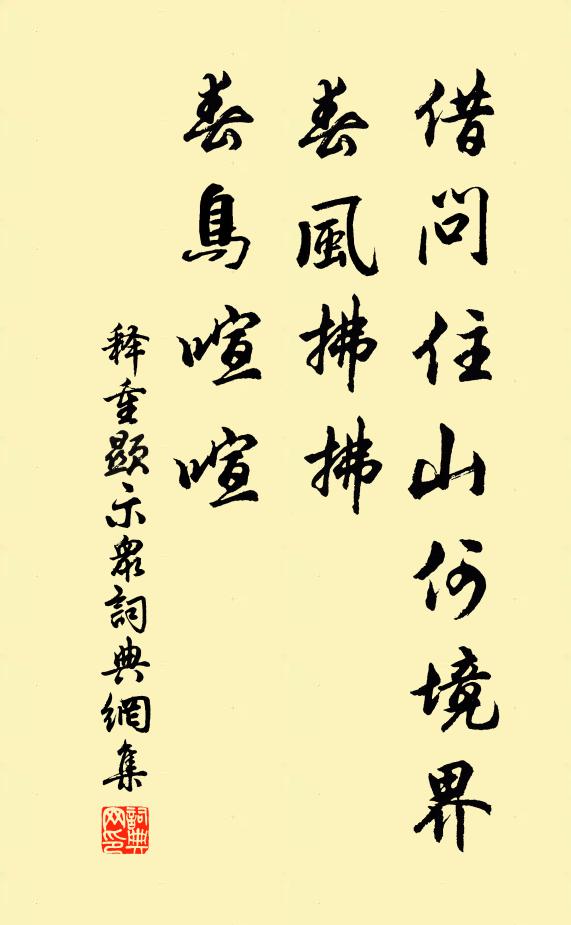 借問住山何境界
春風拂拂
春鳥喧喧
释重顯示眾詞典網集
詞典网印